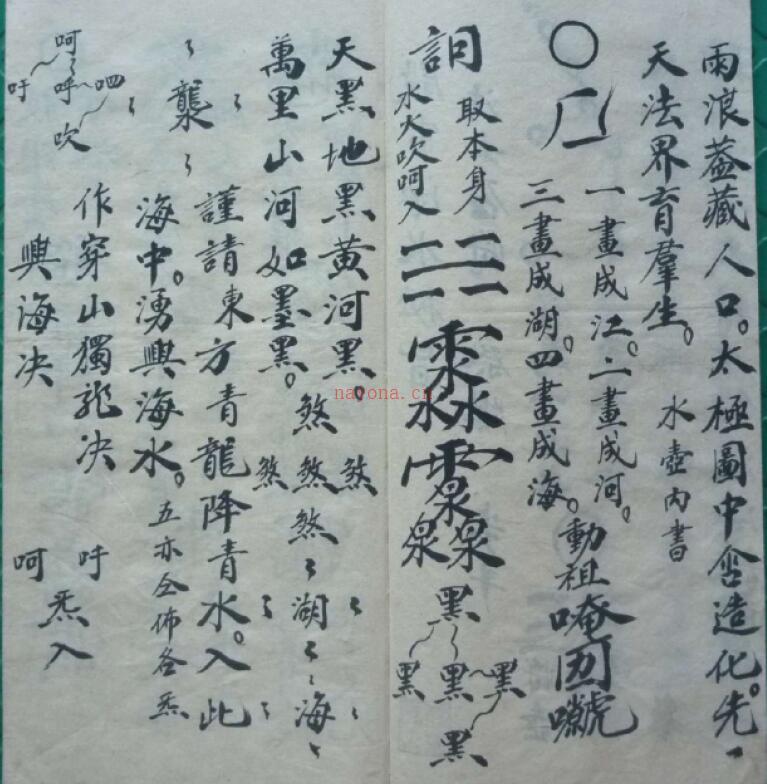 雨浪蓋藏人口。太極圖中含造化。先、
天法界育羣生。 水壺內書
一畫成江。二畫成河。
三畫成湖。四畫成海。動祖唵囬
取本身
水火吹呵入
黑
黑 黑 黑
黑
天黑地黑黃河黑。
煞
煞 煞 煞
煞
萬里山河如墨黑。
湖
海
襲
謹請東方青龍降青水。入此
海中。湧興海水。五亦仝佈各炁
呵
吁 呼 呬
吹
作穿山獨龍决
興海决
呵 吁
炁入
nayona.cn